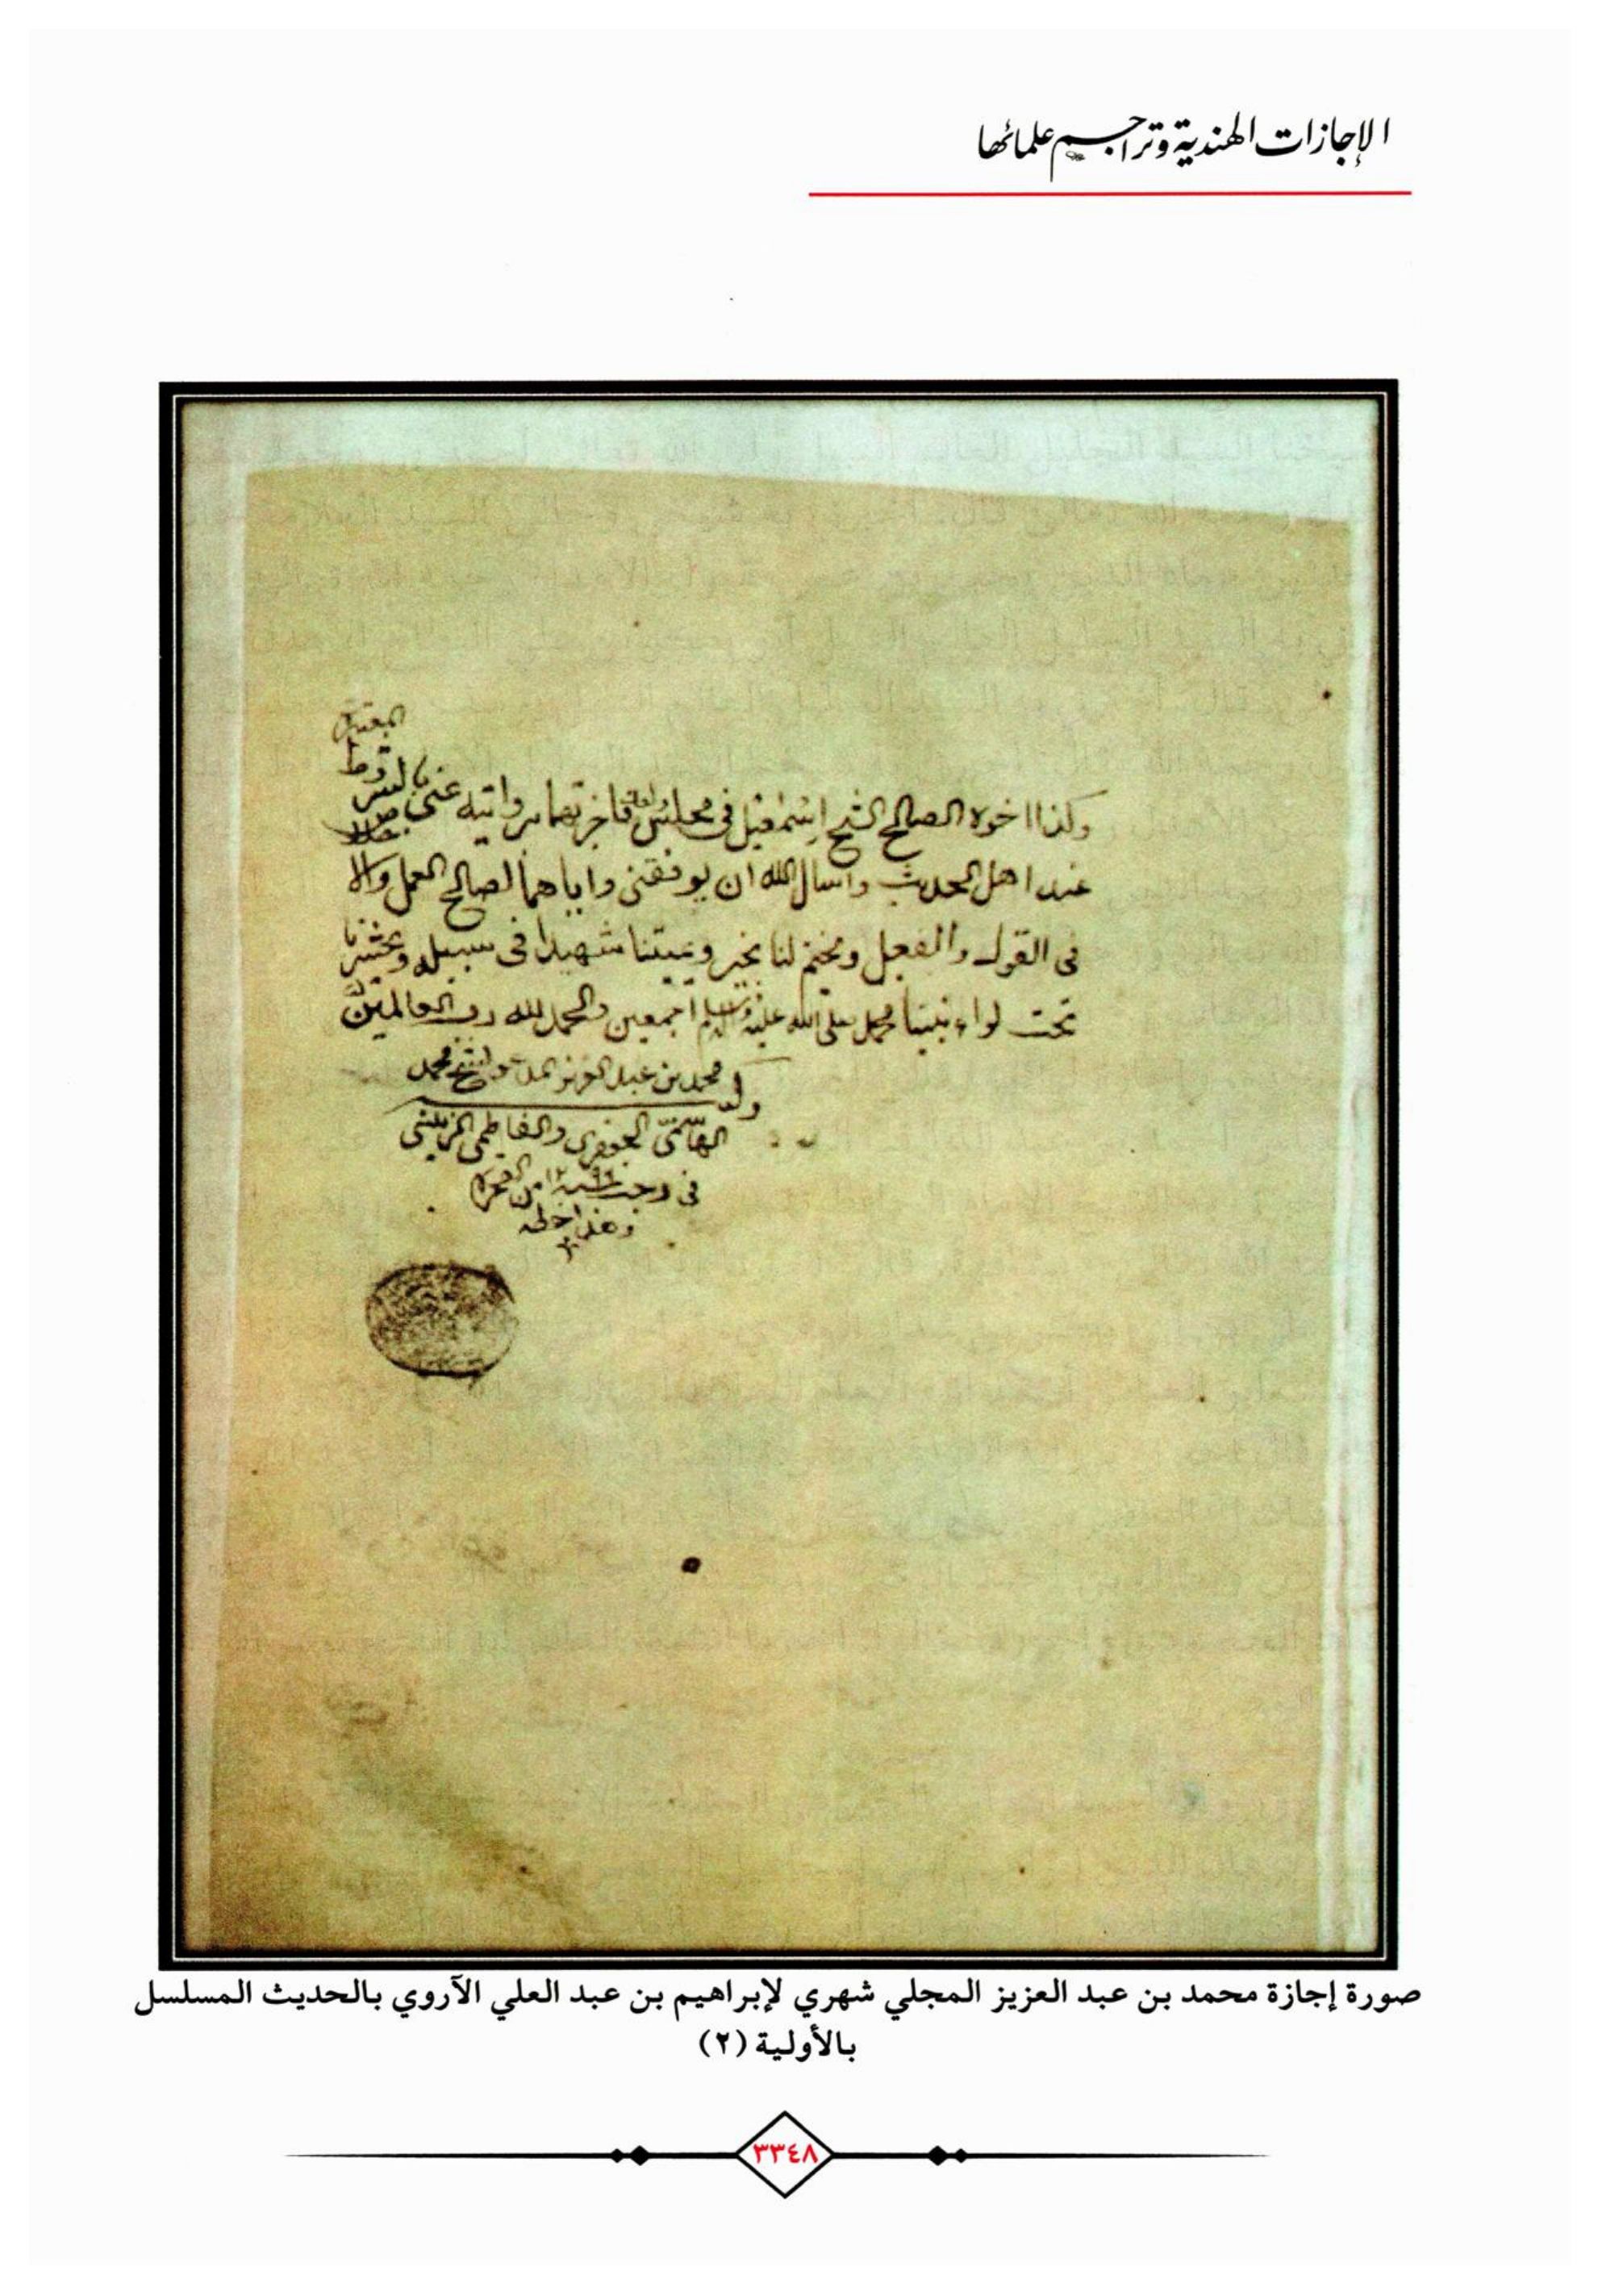 الإجازات الهندية وتراجم علمائها
المعتبرة
وكذا اخوه الصالح الشيخ إسمعيل في مجلس فاجزتهما بروايته عني بالشروط
عند اهل الحديث واسال الله ان يوفقني واياهما لصالح العمل
في القول والفعل ويختم لنا بخير ويميتنا شهيدا في سبيله ويحشرنا
تحت لواء نبينا محمد صلى الله عليه وسلم اجمعين والحمد لله رب العالمين
محمد بن عبد العزيز محمد
الهاشمي الجعفري والفاطمي الزينبي
في رجب سنة ١٢٩٦ من الهجرة
وهذا خطه
صورة إجازة محمد بن عبد العزيز المجلي شهري لإبراهيم بن عبد العلي الآروي بالحديث المسلسل
بالأولية (٢)
٣٣٤٨